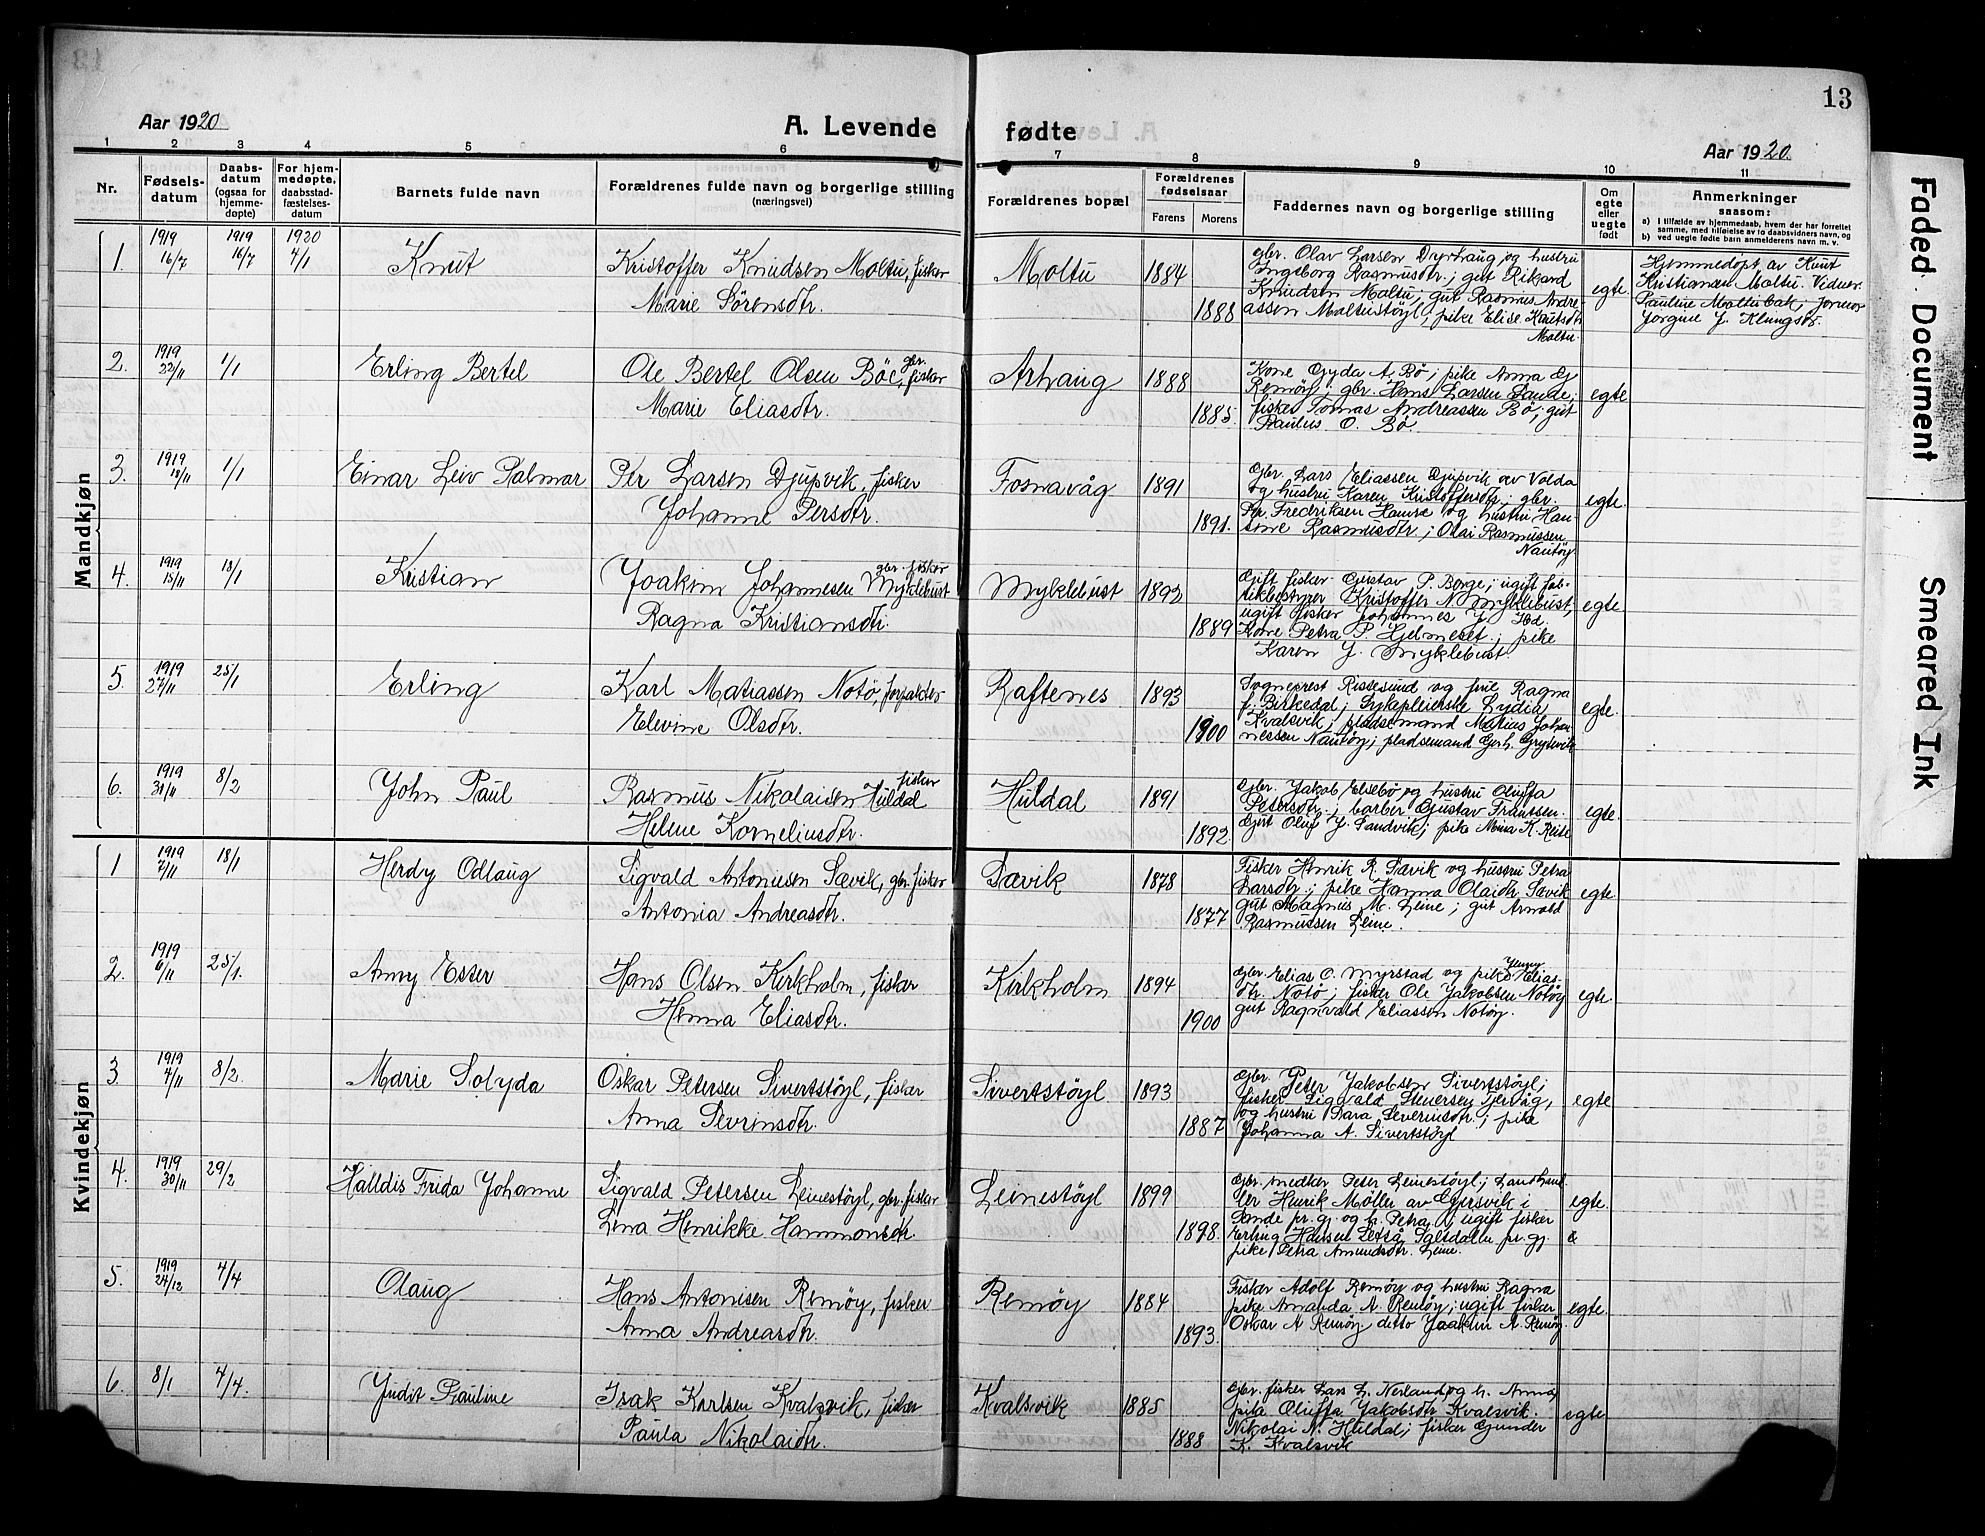 13
Aar 1920
A. Levende fødte
Aar 1920.
1 2 3 4 5 6 7 8 9 10 11
Nr.
Fødsels-
datum
Daabs-
datum
(ogsaa for
hjemme-
døpte)
For hjem-
medøpte,
daabsstad-
fæstelses-
datum
Barnets fulde navn
Forældrenes fulde navn og borgerlige stilling
(næringsvei)
Forældrenes bopæl
Forældrenes
fødselsaar
Farens
Morens
Faddernes navn og borgerlige stilling
Om
egte
eller
uegte
født
Anmerkninger
saasom:
a) I tilfælde av hjemmedaab, hvem der har forrettet
samme, med tilføielse av to daabsvidners navn, og
b) ved uegte fødte barn anmelderens navn m. v.
Mandkjøn
1. 1919 16/7 1919 16/7 1920 4/1 Knut
Kristoffer Knudsen Moltu, fisker
Marie Sörensdtr.
Moltu 1884 1888
gbr. Olav Larsen Dyrhaug og hustru
Ingeborg Rasmusdtr.; gut Rikard
Knudsen Moltu; gut Rasmus Andre-
assen Moltustöyl; pike Elise Knutsdtr
Moltu.
egte.
Hjemmedöpt av Knut
Kristiansen Moltu. Vidner:
Pauline Moltubak; jormor
Jorgine J. Klungsör.
2. 1919 22/11 1/1 Erling Bertel
Ole Bertel Olsen Böe, gbr. fisker
Marie Eliasdtr.
Arhaug 1888 1885.
Kone Gyda A. Bö; pike Anna Gj
Remöy; gbr. Hans Larsen Sande;
fisker Tomas Andreassen Bö; gut
Paulus O. Bö.
egte
3. 1919 18/11 1/1 Einar Leiv Palmar
Per Larsen Djupvik, fisker
Johanne Persdtr.
Fosnavåg 1891 1891.
Gbr. Lars Eliassen Djupvik av Volda
og hustru Karen Kristoffersdtr; gbr.
Per Fredriksen Hamre og hustru Han-
sine Rasmusdtr.; Olai Rasmussen
Nautöy.
egte.
4. 1919 15/11 18/1 Kristian
Joakim Johannesen Myklebust gbr. fisker
Ragna Kristiansdtr.
Myklebust 1892 1889
Gift fisker Gustav P. Berge; ugift fab-
rikbestyrer Kristoffer N. Myklebust,
ugift fisker Johannes J. Hd.
Kone Petra P. Hjelmeset.; pike
Karen J. Myklebust.
egte.
5. 1919 27/11 25/1 Erling
Karl Matiassen Notö, forpakter
Elevine Olsdtr.
Raftenes 1893 1900
Sogneprest Ristesund og frue Ragna
f. Birkedal; Sykepleierske Lydia
Kvalsvik; pladsemand Matias Johan-
nessen Nautöy; pladsemand Gerh. Grytevik
egte.
6. 1919 31/11 8/2 John Paul
Rasmus Nikolaisen Huldal fisker
Helene Korneliusdtr.
Huldal 1891 1892.
Gbr. Jakob Elsebö og hustru Oluffa
Petersdtr.; barber Gustav Frantsen.
Gut Oluf J. Sandvik; pike Mina K. Reite
egte.
Kvindekjøn
1 1919 7/11 18/1 Herdy Odlaug
Sigvald Antonsen Sævik, gbr. fisker
Antonia Andreasdtr.
Sævik 1878 1877
Fisker Henrik R. Sævik og hustru Petra
Larsdtr.; pike Hanna Olaidtr. Sævik
gut Magnus M. Leine; gut Arnold
Rasmussen Leine.
egte.
2. 1919 6/11 25/1. Anny Ester
Hans Olsen Kirkholm, fisker
Hanna Eliasdtr.
Kirkholm 1894 1900
gbr. Elias O. Myrstad og pike Jenny Elias-
dtr. Notö; fisker Ole Jakobsen Notöy
gut Ragnvald Eliassen Notöy.
egte.
3. 1919 4/11 8/2. Marie Solyda
Oskar Petersen Sivertstöyl, fisker
Anna Severinsdtr.
Sivertstöyl 1893 1887
Gbr. Peter Jakobsen Sivertstöyl;
fisker Sigvald Steversen Tjervåg,
og hustru Sara Severinsdtr.; pike
Johanna A. Sivertstöyl
egte
4. 1919 30/11 29/2 Halldis Frida Johanne
Sigvald Petersen Leinestöyl, gbr. fisker
Lina Henrikke Hammonsdtr.
Leinestöyl 1899 1898.
Gbr. snedker Peter Leinestöyl; Landhand
ler Henrik Möller av Gjersvik i
Sande pr. gj og h. Petra; ugift fisker
Erling Hansen Letså Saltdalen pr. gj.
pike Petra Amundsdtr. Leine.
egte.
5. 1919 24/12 4/4 Olaug
Hans Antonisen Remöy, fisker
Anna Andreasdtr.
Remöy 1884 1893.
Fisker Adolf Remöy og hustru Ragna
pike Amanda A. Remöy; ugift fisker
Oskar A Remöy ditto Joakim A. Remöy.
egte.
6. 8/1 4/4. Judit Pauline
Isak Karlsen Kvalsvik, fisker
Paula Nikolaidtr.
Kvalsvik 1885 1888
Gbr. fisker Lars L. Nerland og h. Anna,
pike Oluffa Jakobsdtr Kvalsvik.
Nikolai N. Huldal; fisker Gunder
K. Kvalsvik
egte
Faded Document
Smeared Ink